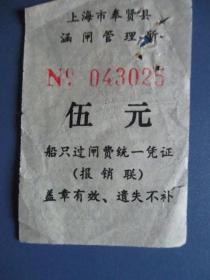 上海市奉贤县
涵闸管理所
Nº 043025
伍元
船只过闸费统一凭证
(报销联)
盖章有效、遗失不补